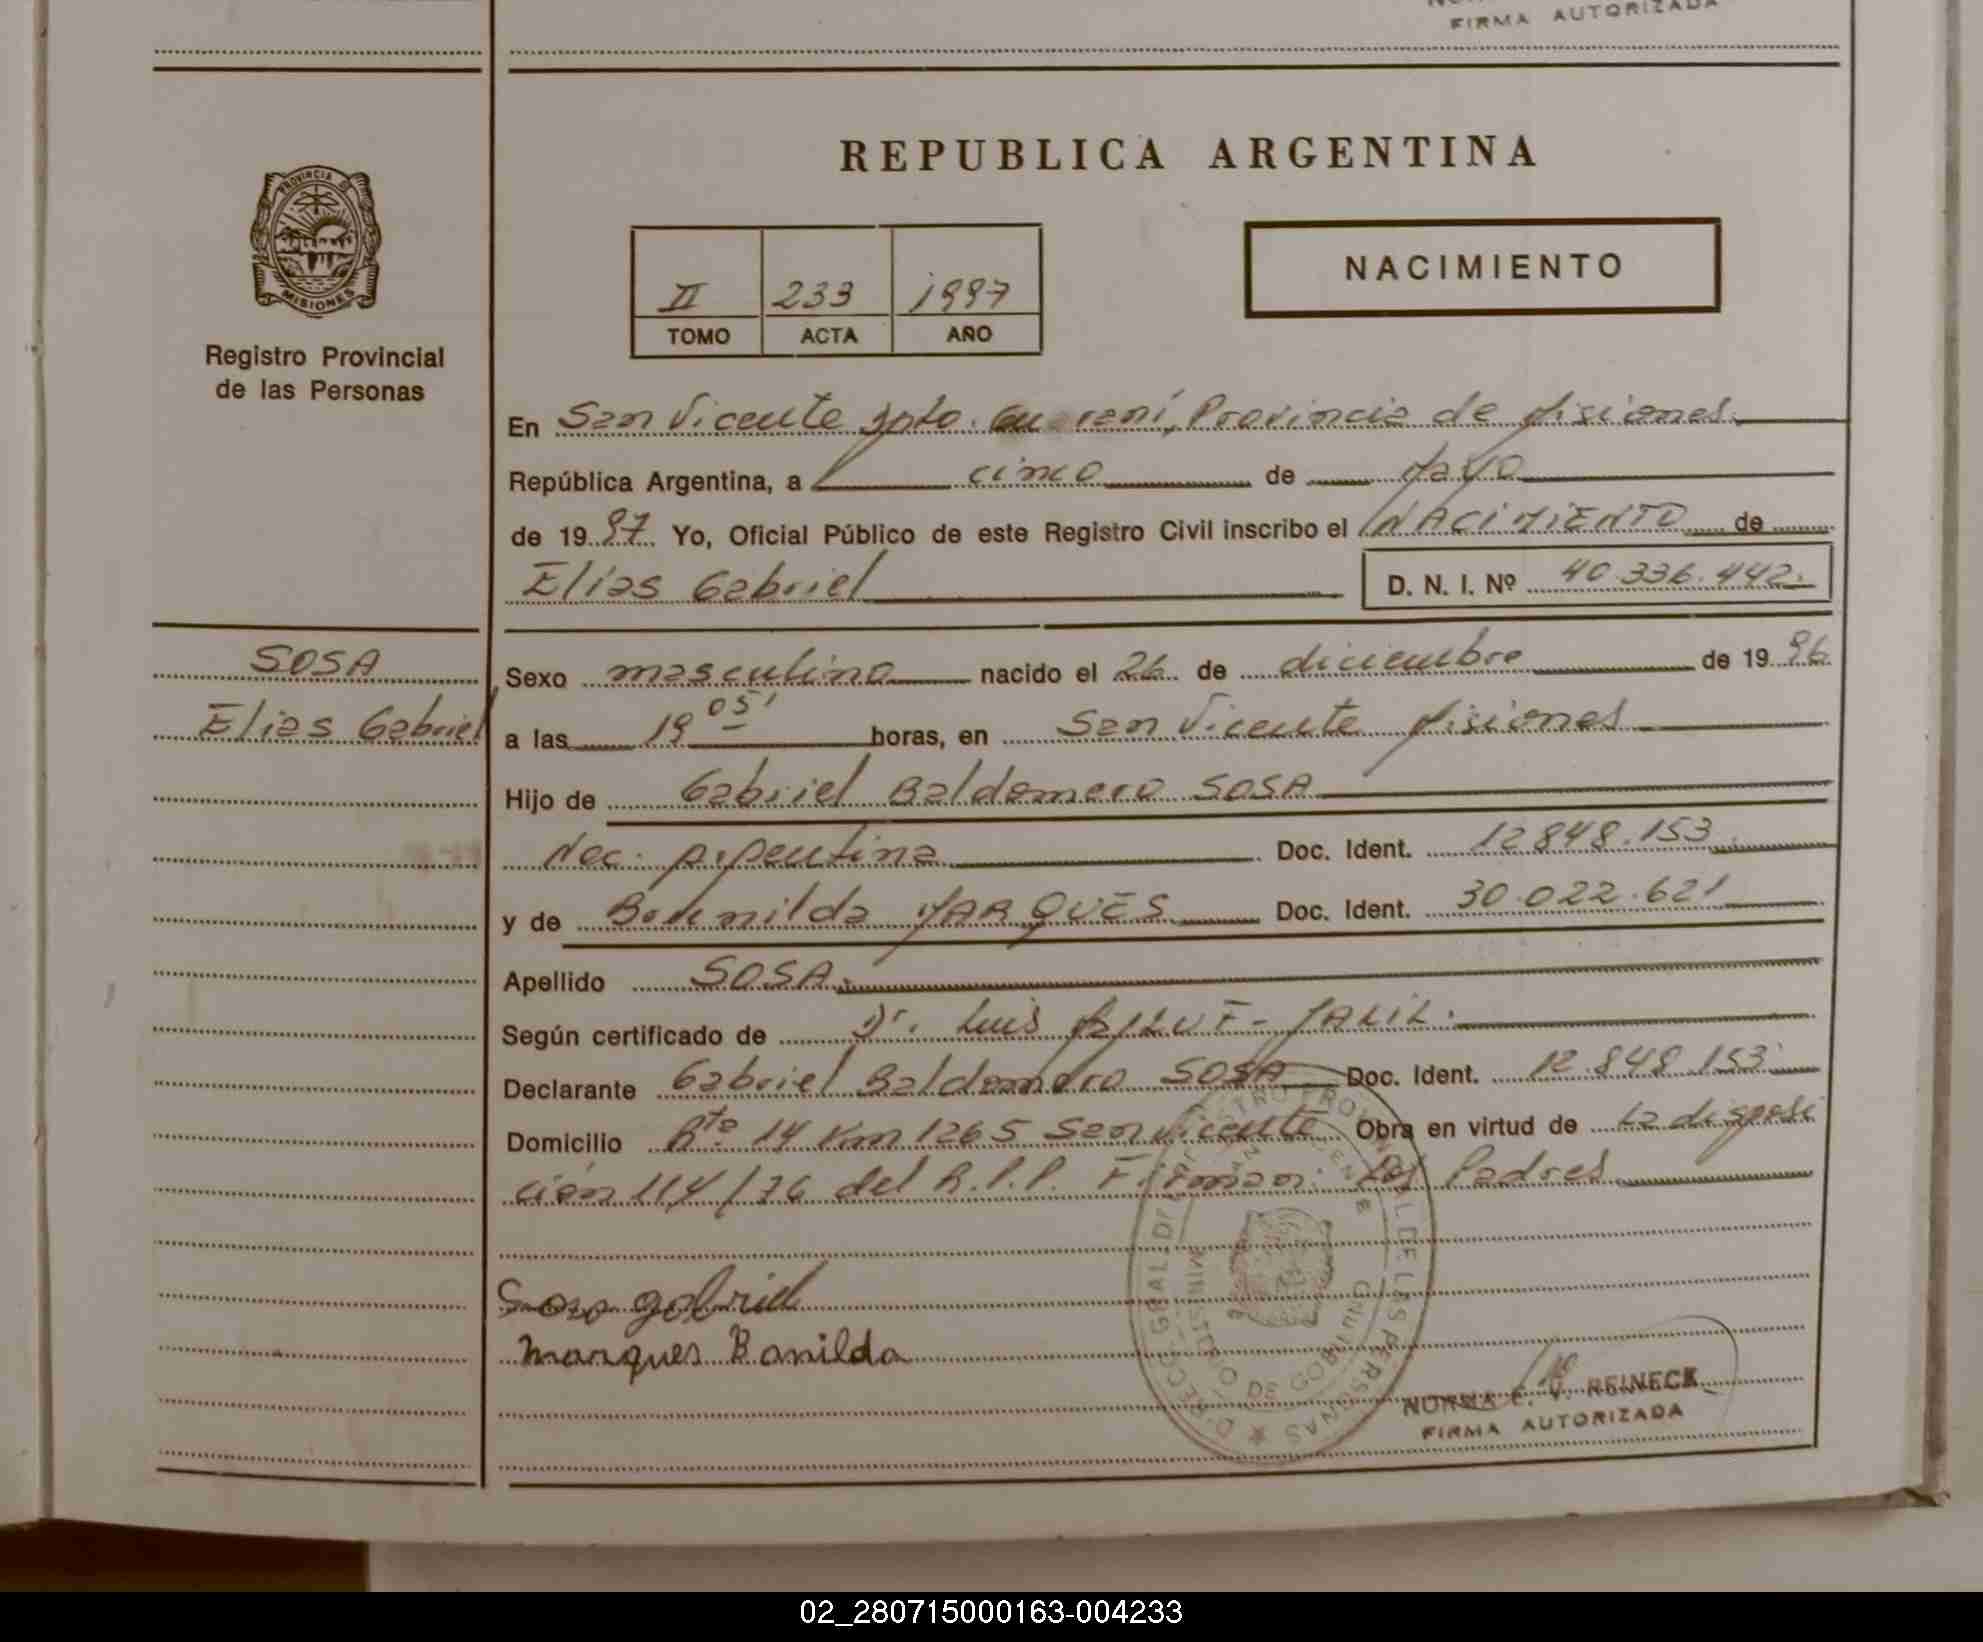 FIRMA AUTORIZADA
REPUBLICA ARGENTINA
PROVINCIA DE
MISIONES
Registro Provincial
de las Personas
II 233 1997
TOMO ACTA AÑO
NACIMIENTO
En San Vicente Dpto. Guaraní, Provincia de Misiones.
República Argentina, a cinco de Mayo
de 1997 Yo, Oficial Público de este Registro Civil inscribo el NACIMIENTO de
Elias Gabriel D. N. I. Nº 40.336.442.
SOSA
Elias Gabriel
Sexo masculino nacido el 26 de diciembre de 1996
a las 19 05' horas, en San Vicente Misiones
Hijo de Gabriel Baldomero SOSA
Nac. Argentina Doc. Ident. 12.848.153.
y de MARQUES Doc. Ident. 30.022.621
Apellido SOSA.
Según certificado de Dr. Luis JALIL.
Declarante Gabriel Baldomero SOSA Doc. Ident. 12.848.153.
Domicilio Rta 14 Km 1265 San Vicente Obra en virtud de La disposi
ción 114/76 del R.P.P. Firman: Los Padres
Soso gabriel
Marques Banilda
NORMA E. V. REINECK
FIRMA AUTORIZADA
02_280715000163-004233